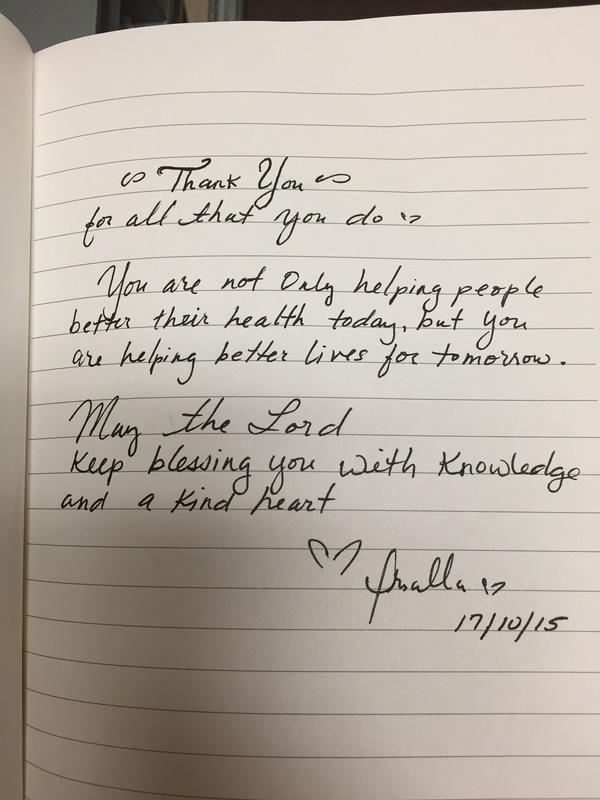 Thank You
for all that you do :)
You are not Only helping people
better their health today, but you
are helping better lives for tomorrow.
May the Lord
Keep blessing you with Knowledge
and a Kind heart
17/10/15